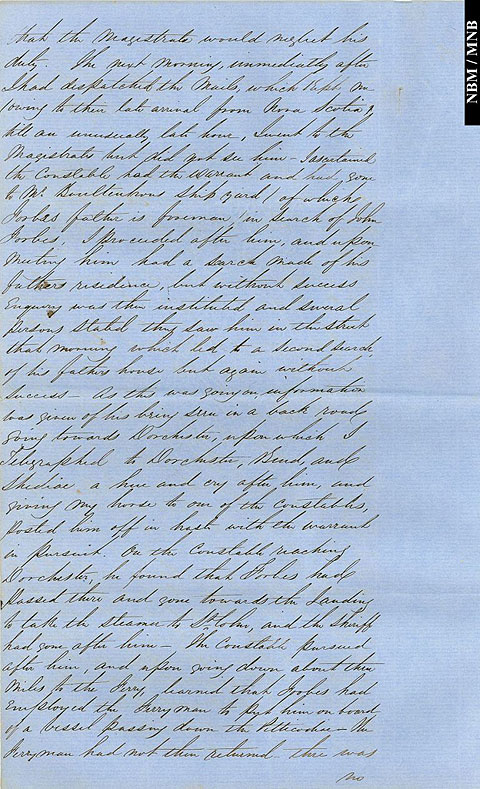 that the Magistrate would neglect his
duty. The next morning, immediately after
I had dispatched the Mails, which kept me
(owing to their late arrival from Nova Scotia)
till an unusually late hour, I went to the
Magistrate but did not see him - I ascertained
the Constable had the Warrant and had gone
to Mr. Boultenhous Ship yard (of which
Forbes father is foreman) in search of John
Forbes. I proceeded after him, and upon
meeting him had a surch made of his
fathers residence, but without success
Enquiry was then instituted and several
persons stated they saw him in the street
that morning which led to a second search
of his fathers house but again without
success - As this was going on, information
was given of his being seen in a back road
going towards Dorchester, upon which I
Telegraphed to Dorchester, Bend, and
Shediac a hue and cry after him, and
giving my horse to one of the Constables,
posted him off in hast with the warrant
in pursuit. On the Constable reaching
Dorchester, he found that Forbes had
passed there and gone towards the Landing
to take the steamer to St John, and the Sheriff
had gone after him - The Constable pursued
after him, and upon going down about three
Miles to the Ferry, learned that Forbes had
Employed the Ferryman to put him on board
of a vessel passing down the Petticodiac - The
Ferryman had not then returned - there was
no
NBM / MNB